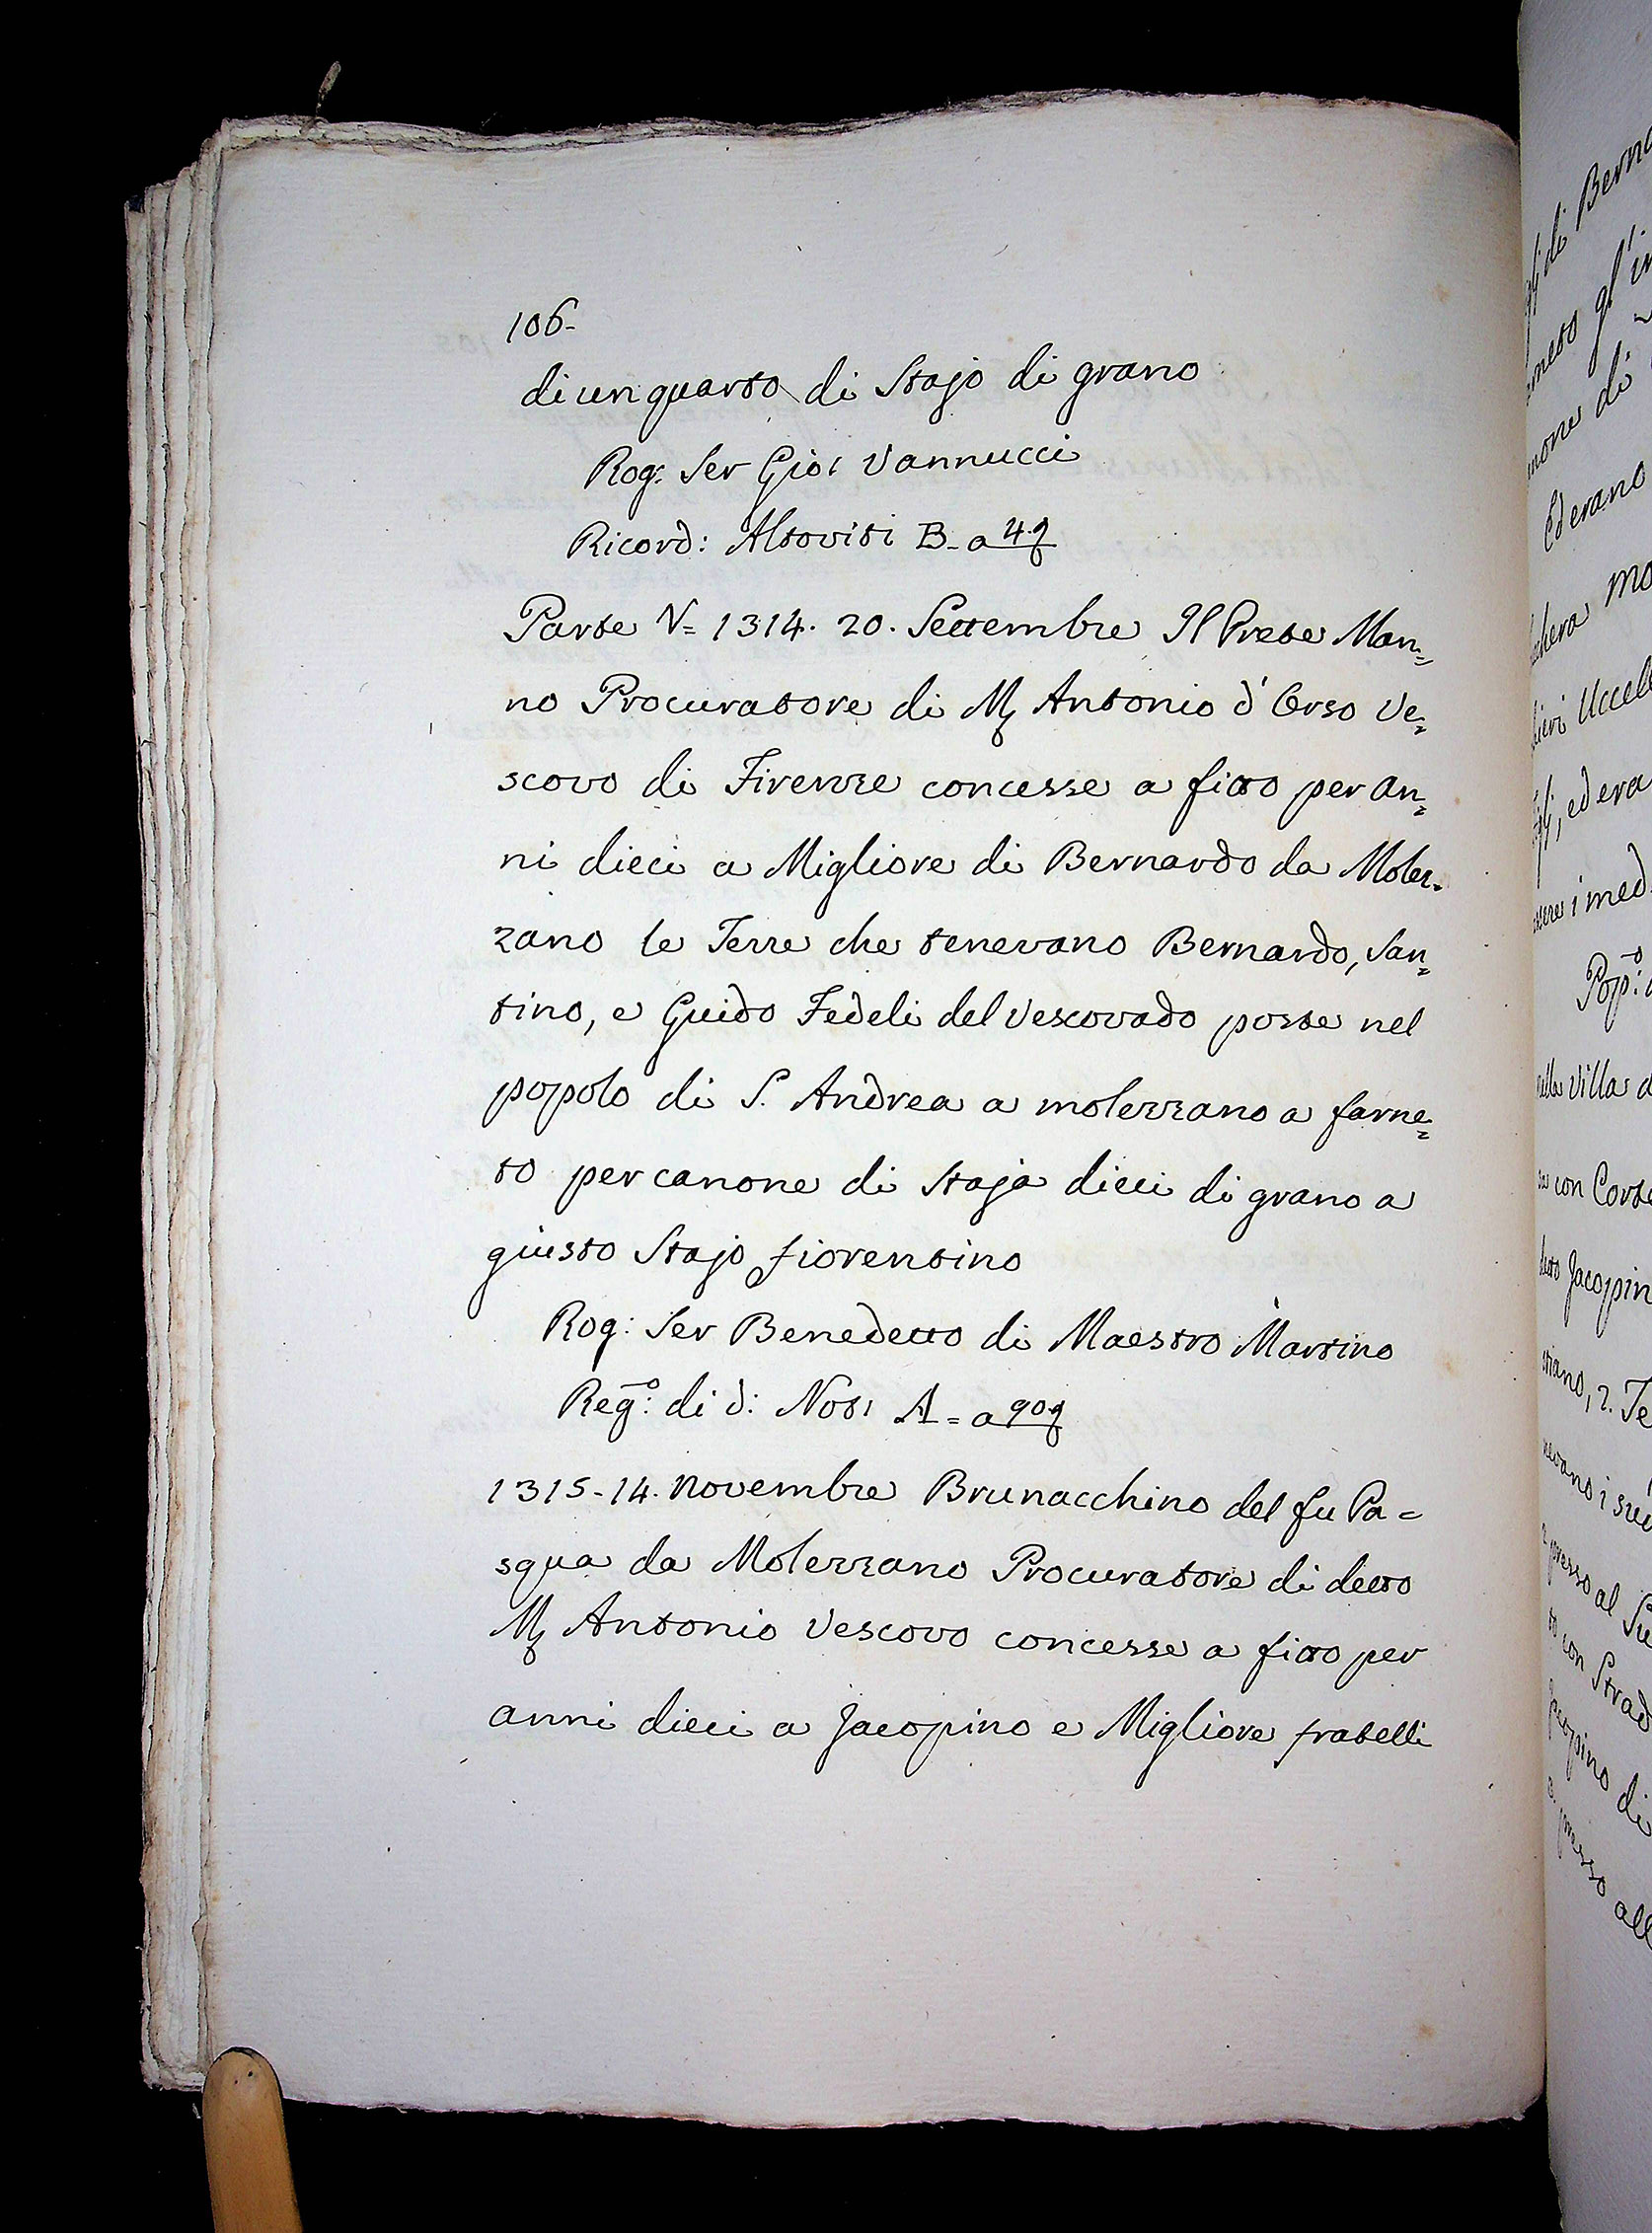 106-
di un quarto di Stajo di grano
Rog: Ser Gio: Vannucci
Ricord: Altoviti B- a 4
Parte V= 1314. 20. Settembre Il Prete Man=
no Procuratore di M Antonio d'Orso Ve=
scovo di Firenze concesse a fitto per an=
ni dieci a Migliore di Bernardo da Molez=
zano le Terre che tenevano Bernardo, San=
tino, e Guido Fedeli del Vescovado poste nel
popolo di S. Andrea a molezzano a farne=
to per canone di Staja dieci di grano a
giusto Stajo fiorentino
Rog: Ser Benedetto di Maestro Martino
Reg:o di d: Not: A= a 90
1315-14. Novembre Brunacchino del fu Pa=
squa da Molezzano Procuratore di detto
M Antonio Vescovo concesse a fitto per
anni dieci a Jacopino e Migliore fratelli
di Bern
gl'in
di
Ed erano
Mo
Uccell
, ed era
i med
Pop:o
Villa d
con Corte
Jacopin
, 2. Te
i
presso al
con Strad
di
presso all